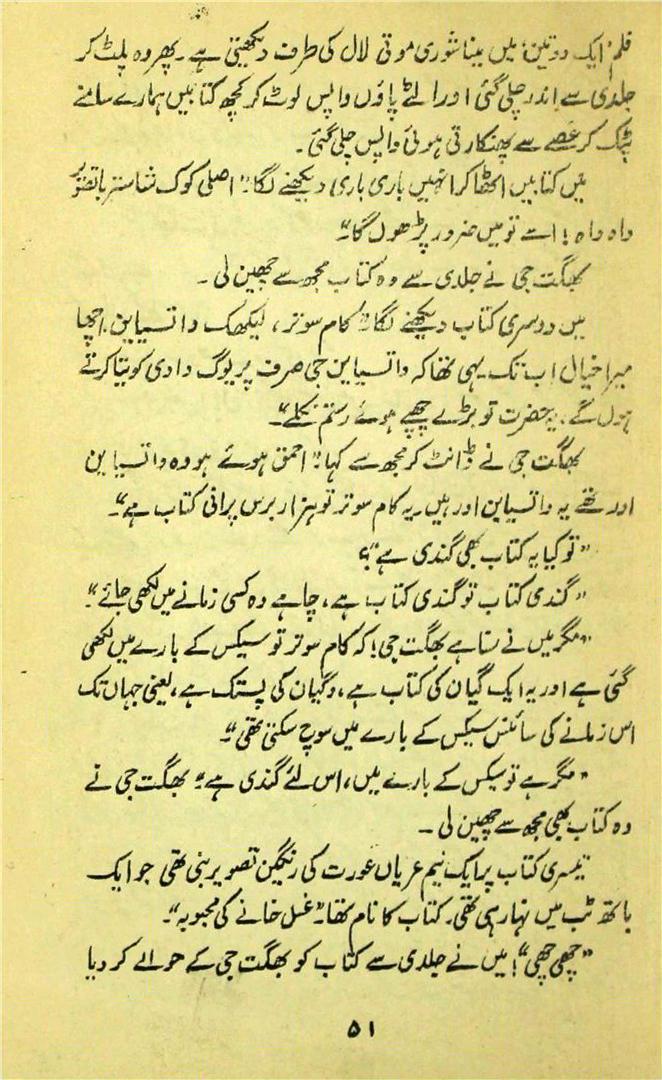 فلم ’ایک دو تین‘ میں مینا شوری موتی لال کی طرف دیکھتی ہے۔ پھر وہ پلٹ کر
جلدی سے اندر چلی گئی اور الٹے پاؤں واپس لوٹ کر کچھ کتابیں ہمارے سامنے
پٹک کر غصے سے پھنکارتی ہوئی واپس چلی گئی۔
میں کتابیں اٹھا کر انہیں باری باری دیکھنے لگا: ”اصلی کوک شاستر باتصویر
واہ واہ! اسے تو میں ضرور پڑھوں گا۔“
بھگت جی نے جلدی سے وہ کتاب مجھ سے چھین لی۔
میں دوسری کتاب دیکھنے لگا: ”کام سوتر، لیکھک واتسیاین، اچھا
میرا خیال اب تک یہی تھا کہ واتسیاین جی صرف پریوگ وادی کویتا کرتے
ہوں گے۔ یہ حضرت تو بڑے چھپے ہوئے رستم نکلے“۔
بھگت جی نے ڈانٹ کر مجھ سے کہا: ”احمق ہوئے ہو وہ واتسیاین
اور تھے یہ واتسیاین اور ہیں۔ یہ کام سوتر تو ہزار برس پرانی کتاب ہے“۔
”تو کیا یہ کتاب بھی گندی ہے“؟
”گندی کتاب تو گندی کتاب ہے، چاہے وہ کسی زمانے میں لکھی جائے“۔
”مگر میں نے سنا ہے بھگت جی! کہ کام سوتر تو سیکس کے بارے میں لکھی
گئی ہے اور یہ ایک گیان کی کتاب ہے، وگیان کی پستک ہے، یعنی جہاں تک
اس زمانے کی سائنس سیکس کے بارے میں سوچ سکتی تھی“۔
”مگر ہے تو سیکس کے بارے میں، اس لئے گندی ہے“ بھگت جی نے
وہ کتاب بھی مجھ سے چھین لی۔
تیسری کتاب پر ایک نیم عریاں عورت کی رنگین تصویر بنی تھی جو ایک
باتھ ٹب میں نہا رہی تھی۔ کتاب کا نام تھا: ”غسل خانے کی محبوبہ“۔
”چھی چھی“! میں نے جلدی سے کتاب کو بھگت جی کے حوالے کر دیا
۵۱